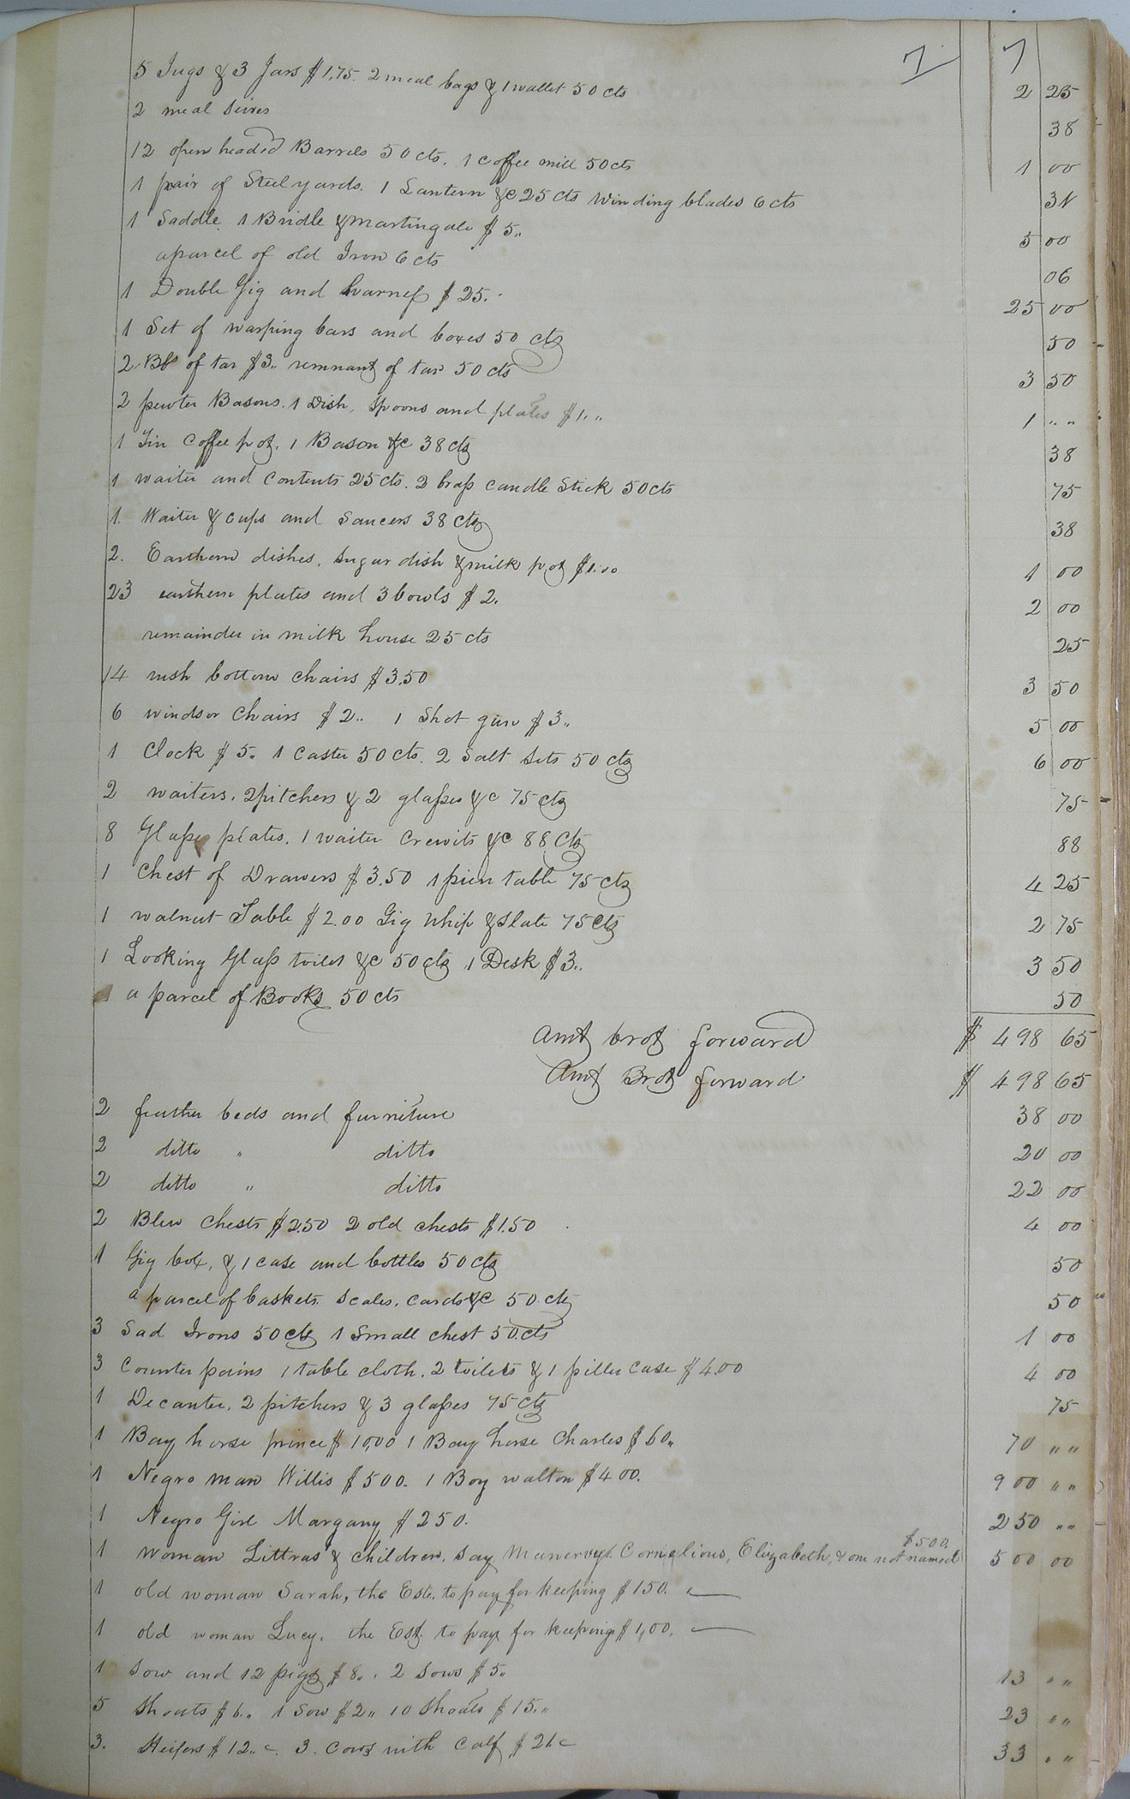 7 7
5 Jugs & 3 Jars $1.75. 2 meal bags & 1 wallet 50 cts 2 25
2 meal sives 38
12 open headed Barrels 50 cts. 1 Coffee mill 50 cts 1 00
1 pair of Steelyards. 1 Lantern &c 25 cts winding blades 6 cts 31
1 Saddle. 1 Bridle & martingale $5.. 5 00
a parcel of old Iron 6 cts 06
1 Double Gig and harness $25. 25 00
1 Set of warping bars and boxes 50 cts 50
2 Bb of tar $3.. remnant of tar 50 cts 3 50
2 pewter Basons. 1 Dish, Spoons and plates $1... 1 " "
1 Tin Coffee pot. 1 Bason &c 38 cts 38
1 waiter and contents 25 cts. 2 brass candle Stick 50 cts 75
1. Waiter & cups and Saucers 38 cts 38
2. Earthern dishes, Sugar dish & milk pot $1.00 1 00
23 earthern plates and 3 bowls $2. 2 00
remainder in milk house 25 cts 25
14 rush bottom chairs $3.50 3 50
6 windsor Chairs $2.. 1 Shot gun $3.. 5 00
1 Clock $5. 1 Caster 50 cts. 2 Salt Sets 50 cts 6 00
2 waiters. 2 pitchers & 2 glasses &c 75 cts 75
8 Glass plates. 1 waiter Crewits &c 88 Cts 88
1 Chest of Drawers $3.50 1 pien table 75 cts 4 25
1 walnut Table $2.00 Gig whip & Slate 75 Cts 2 75
1 Looking Glass toilet &c 50 cts 1 Desk $3.. 3 50
1 a parcel of Books 50 cts 50
Amt brot forward $ 498 65
Amt Brot forward $ 498 65
2 feather beds and furniture 38 00
2 ditto " ditto 20 00
2 ditto " ditto 22 00
2 Blew Chests $2.50 2 old chests $1.50 4 00
1 Gig box, & 1 case and bottles 50 cts 50
a parcel of baskets. Scales. cards &c 50 cts 50
3 Sad Irons 50 cts 1 Small chest 50 cts 1 00
3 Counter pains 1 table cloth. 2 toilets & 1 piller case $4.00 4 00
1 Decanter. 2 pitchers & 3 glasses 75 cts 75
1 Bay horse prince $10,00 1 Bay horse Charles $60.. 70 " "
1 Negro man Willis $500. 1 Boy walton $400. 900 " "
1 Negro Girl Margany $250. 250 " "
$500.
1 woman Littras & children, Say Manervy. Cornelious, Elizabeth, & one not named 500 00
1 old woman Sarah, the Este. to pay for keeping $150.
1 old woman Lucy. the Est. to pay for keeping $1,00.
1 Sow and 12 pigs $8.. 2 Sows $5. 13 " "
5 Shoats $6.. 1 Sow $2.. 10 Shoats $15.. 23 " "
3. Heifers $12.. 3. Cows with Calf $21 33 " "